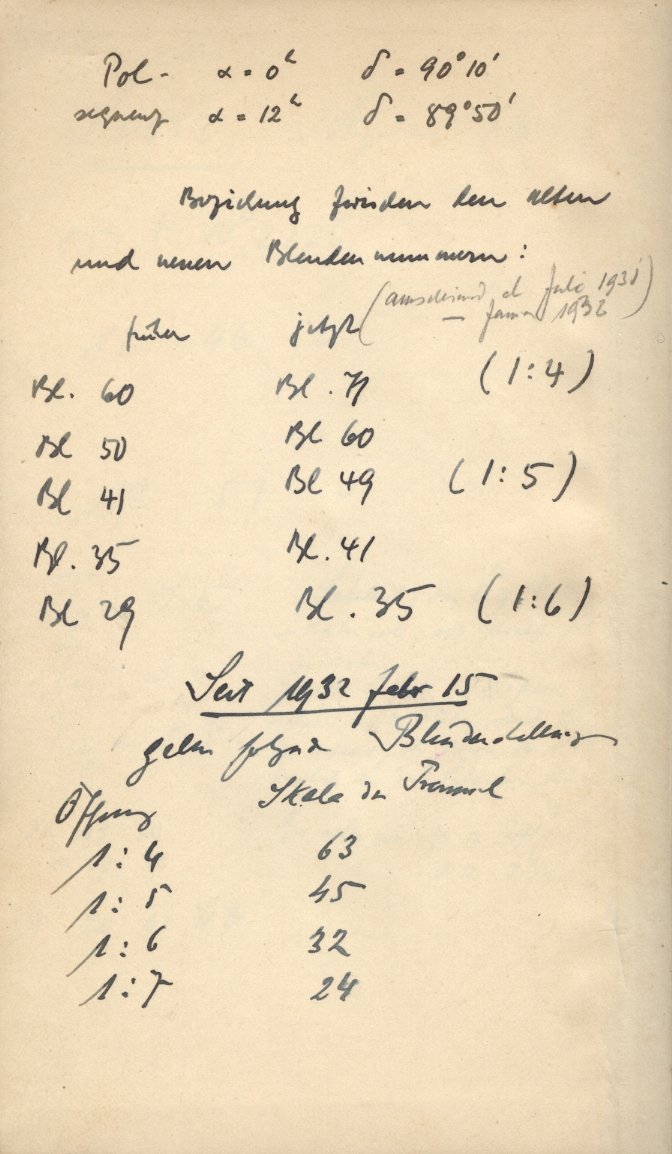 Pol- α = 0ʰ δ = 90° 10'
segment α = 12ʰ δ = 89° 50'
Beziehung zwischen den alten
und neuen Blendennummern:
früher jetzt ( Juli 1931
— Januar 1932 )
Bl. 60 Bl. 71 (1:4)
Bl 50 Bl 60
Bl 41 Bl 49 (1:5)
Bl. 35 Bl. 41
Bl 29 Bl. 35 (1:6)
Seit 1932 Febr 15
gelten folgende Blendenstellungen
Öffnung Skala der Trommel
1:4 63
1:5 45
1:6 32
1:7 24